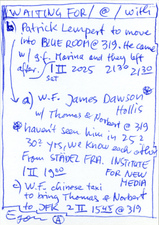 WAITING FOR / @ / with
b) Patrick Lempert to move
into BLUE ROOM @ 319. He came
w/ g.f. Marine and they left
after. 1 II 2025 21³⁰ 21³⁰
SET
a) W.F. James Dawson
Hollis
w/ Thomas & Norbert @ 319
haven't seen him in 25?
30? yrs, we know each other
From STÄDEL FRA. INSTITUTE
FOR NEW
MEDIA
1 II 19⁰⁰
c) W.F. chinese taxi
to bring Thomas & Norbert
to JFK 2 II 15⁴⁵ @ 319
A